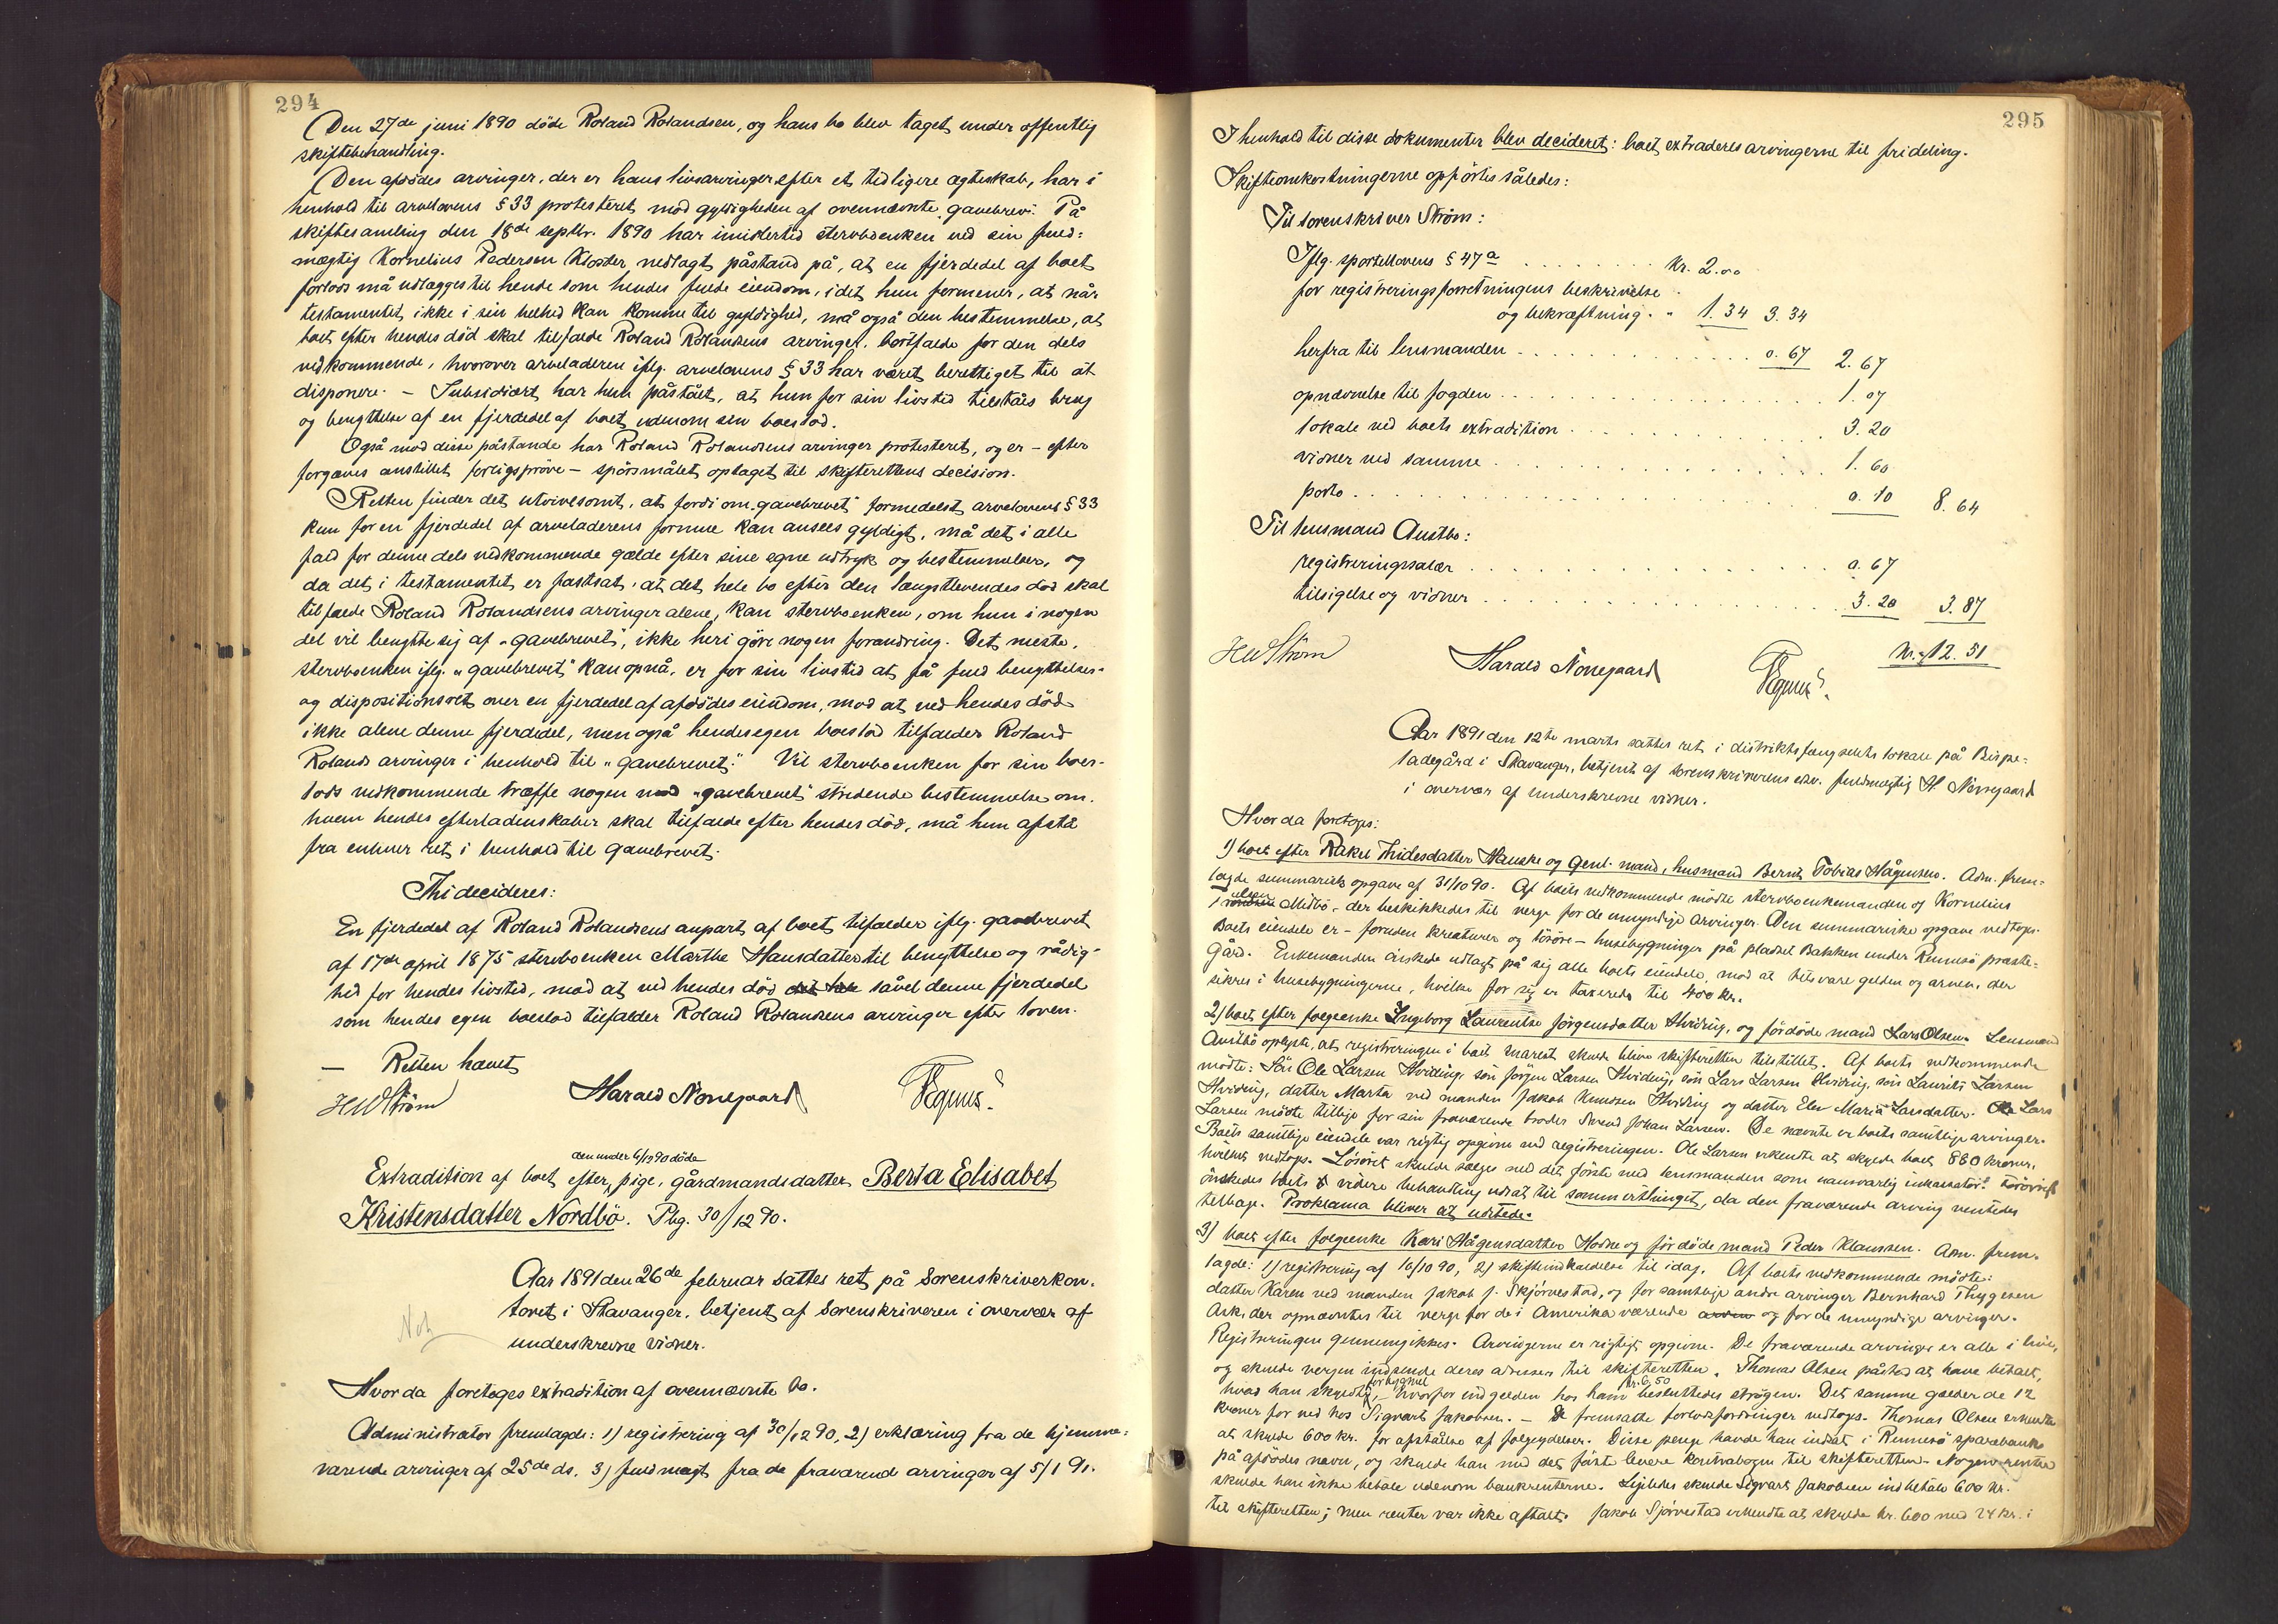 294
Den 27de juni 1890 döde Roland Rolandsen, og hans bo blev taget under offentlig
skiftebehandling.
Den afdödes arvinger, der er hans livsarvinger efter et tidligere ægteskab, har i
henhold til arvelovens § 33 protesteret mod gyldigheden af ovennævnte gavebrev. På
skiftesamling den 18de septbr. 1890 har imidlertid stervboenken ved sin fuld=
mægtig Kornelius Pedersen Kloster nedlagt påstand på, at en fjerdedel af boet
forlods må udlægges til hende som hendes fulde eiendom, idet hun formener, at når
testamentet ikke i sin helhed kan komme til gyldighed, må også den bestemmelse, at
boet efter hendes död skal tilfalde Roland Rolandsens arvinger, bortfalde for den dels
vedkommende, hvorover arveladeren iflg. arvelovens § 33 har været berettiget til at
disponere. – Subsidiært har hun påstået, at hun for sin livstid tilståes brug
og benyttelse af en fjerdedel af boet udenom sin boeslod.
Også mod disse påstande har Roland Rolandsens arvinger protesteret, og er – efter
forgjæves anstillet forligsprøve – spörsmålet optaget til skifterettens decision.
Retten finder det utvivlsomt, at fordi om "gavebrevet" formedelst arvelovens § 33
kun for en fjerdedel af arveladerens formue kan ansees gyldigt, må det i alle
fald for denne dels vedkommende gælde efter sine egne udtryk og bestemmelser, og
da det i testamentet er fastsat, at det hele bo efter den længstlevendes död skal
tilfalde Roland Rolandsens arvinger alene, kan stervboenken, om hun i nogen
del vil benytte sig af "gavebrevet", ikke heri göre nogen forandring. Det meste,
stervboenken iflg. "gavebrevet" kan opnå, er for sin livstid at få fuld benyttelses-
og dispositionsret over en fjerdedel af afdödes eiendom, mod at ved hendes död
ikke alene denne fjerdedel, men også hendes egen boeslod tilfalder Roland
Rolands arvinger i henhold til "gavebrevet." Vil stervboenken for sin boes-
lods vedkommende træffe nogen mod "gavebrevet" stridende bestemmelse om,
hvem hendes efterladenskaber skal tilfalde efter hendes död, må hun afstå
fra enhver ret i henhold til gavebrevet.
Thi decideres:
En fjerdedel af Roland Rolandsens anpart af boet tilfalder iflg. gavebrevet
af 17de april 1875 stervboenken Marthe Hansdatter til benyttelse og rådig-
hed for hendes livstid, mod at ved hendes död såvel denne fjerdedel
som hendes egen boeslod tilfalder Roland Rolandsens arvinger efter loven.
– Retten hævet
HW Ström Harald Norregaard
den under 6/12 90 döde
Extradition af boet efter, pige, gårdmandsdatter Berta Elisabet
Kristensdatter Nordbö. Plg. 30/12 90.
Aar 1891 den 26de februar sattes ret på Sorenskriverkon-
toret i Stavanger, betjent af Sorenskriveren i overvær af
underskrevne vidner.
Not
Hvorda foretoges extradition af ovennævnte bo.
Administrator fremlagde: 1) registrering af 30/12 90, 2) erklæring fra de hjemme-
værende arvinger af 25de ds. 3) fuldmagt fra de fraværende arvinger af 5/1 91.
295
I henhold til disse dokumenter blev decideret: boet extraderes arvingerne til frideling.
Skifteomkostningerne opförtes således:
Til sorenskriver Ström:
Iflg. sportellovens § 47 a . . . Kr. 2.00
for registreringsforretningens beskrivelse
og bekræftning . " 1.34 3.34
herfra til lensmanden . . . 0.67 2.67
opnævnelse til fogden . . . 1.07
lokale ved boets extradition . . . 3.20
vidner ved samme . . . 1.60
porto . . . 0.10 8.64
Til lensmand Austbö:
registreringssalær . . . 0.67
tilsigelse og vidner . . . 3.20 3.87
Kr. 12.51
HW Ström Harald Norregaard
Aar 1891 den 12te marts sattes ret i distriktsfængselets lokale på Bispe-
ladegård i Stavanger, betjent af sorenskriverens edsv. fuldmægtig H. Norregaard
i overvær af underskrevne vidner.
Hvorda foretoges:
1) boet efter Rakel Thidesdatter Hauske og genl. mand, husmand Bernt Tobias Hågensen. Adm. frem-
lagde summarisk opgave af 31/10 90. Af boets vedkommende mödte stervboenkemanden og Kornelius
Midbö, der beskikkedes til verge for de umyndige arvinger. Den summariske opgave vedtoges.
Boets eiendele er – foruden kreaturer og lösöre – husebygninger på pladset Bakken under Rennesö præste-
gård. Enkemanden önskede udlagt på sig alle boets eiendele, mod at tilsvare gelden og arven, der
sikres i husebygningerne, hvilke for sig er taxerede til 400 kr.
2) boet efter folgeenke Ingeborg Laurentse Jörgensdatter Hviding, og fördöde mand Lars Olsen. Lensmand
Austbö oplyste, at registreringen i boet snarest skulde blive skifteretten tilstillet. Af boets vedkommende
mödte: Sön Ole Larsen Hviding, sön Jörgen Larsen Hviding, sön Lars Larsen Hviding, sön Laurits Larsen
Hviding, datter Marta ved manden Jakob Knudsen Hviding og datter Elen Maria Larsdatter. Lars
Larsen mödte tillige for sin fraværende broder Svend Johan Larsen. De nævnte er boets samtlige arvinger.
Boets samtlige eiendele var rigtig opgivne ved registreringen. Ole Larsen erkendte at skylde boet 880 kroner,
hvilket vedtoges. Lösöret skulde sælges ved det förste ved lensmanden som uansvarlig inkassator.
önskedes boets videre behandling udsat til sommerthinget, da den fraværende arving ventedes
tilbage. Proklama bliver at udstede.
3) boet efter folgeenke Kari Hågensdatter Hodne og fördöde mand Peder Klaussen. Adm. frem-
lagde: 1) registrering af 16/10 90, 2) skifteindkaldelse til idag. Af boets vedkommende mödte:
datter Karen ved manden Jakob J. Skjörvestad, og for samtlige andre arvinger Bernhard Thygesen
Ask, der opnævntes til verge for de i Amerika værende og for de umyndige arvinger.
Registreringen gennemgikkes. Arvingerne er rigtigt opgivne. De fraværende arvinger er alle i live,
og skulde vergen indsende deres adresser til skifteretten. Thomas Olsen påstod at have betalt,
for bygmel kr. 6,50
hvad han skyldte, – hvorfor indgelden hos ham besluttedes strögen. Det samme gælder de 12
kroner for ved hos Sigvart Jakobsen. – De fremsatte forlodsfordringer vedtoges. Thomas Olsen erkendte
at skylde 600 kr. for afståelse af folgeydelser. Disse penge havde han indsat i Rennesö sparebank
på afdödes navn, og skulde han med det förste levere kontrabogen til skifteretten. Nogen rente
skulde han ikke betale udenom bankrenterne. Ligeledes skulde Sigvart Jakobsen indbetale 600 kr.
til skifteretten; men renter var ikke aftalt. Jakob Skjörvestad erkendte at skylde kr. 600 med 24 kr. i